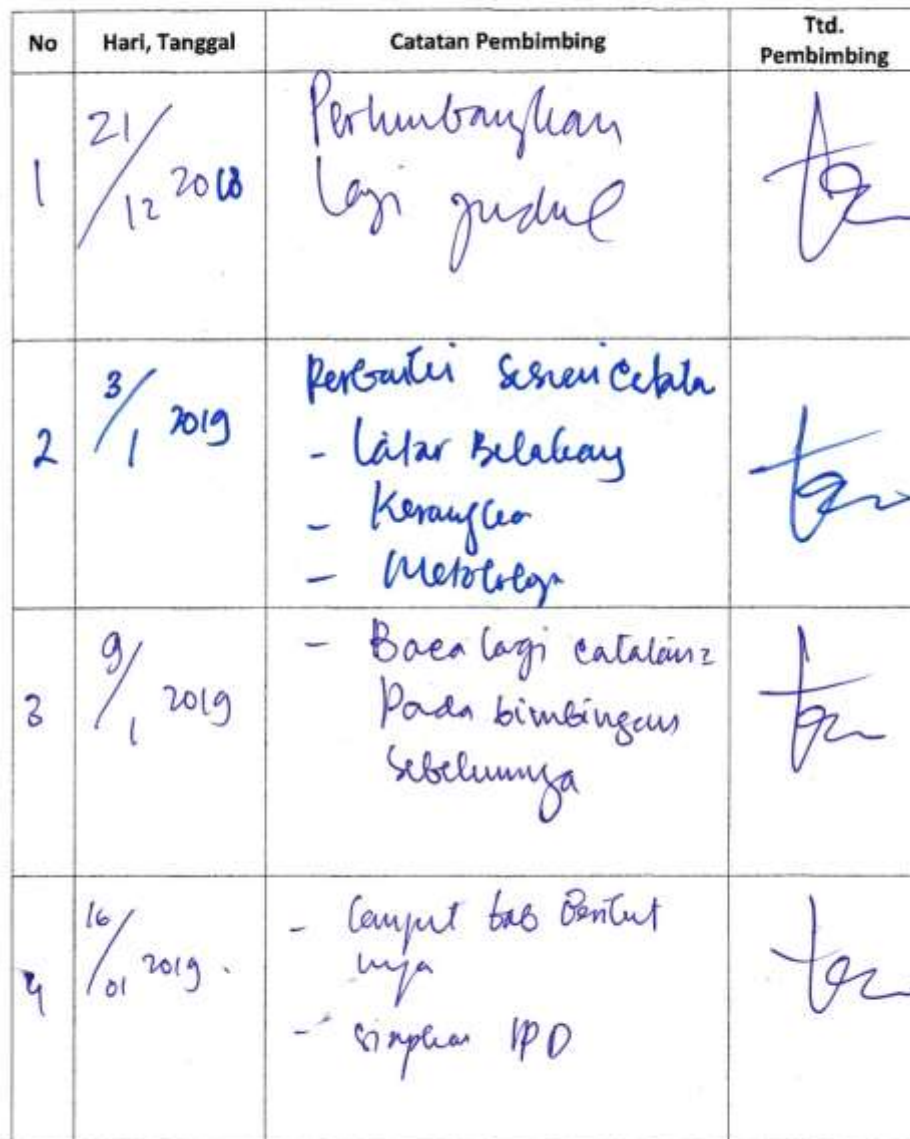 No Hari, Tanggal Catatan Pembimbing Ttd. Pembimbing
1 21/12 2018 Pertimbangkan
lagi judul
2 3/1 2019 Perbaiki sesuai
- Latar Belakang
- Kerangka
- Metodologi
3 9/1 2019 - Baca lagi catatan2
Pada bimbingan
Sebelumnya
4 16/01 2019. - lanjut bab Berikut
nya
- siapkan IPD